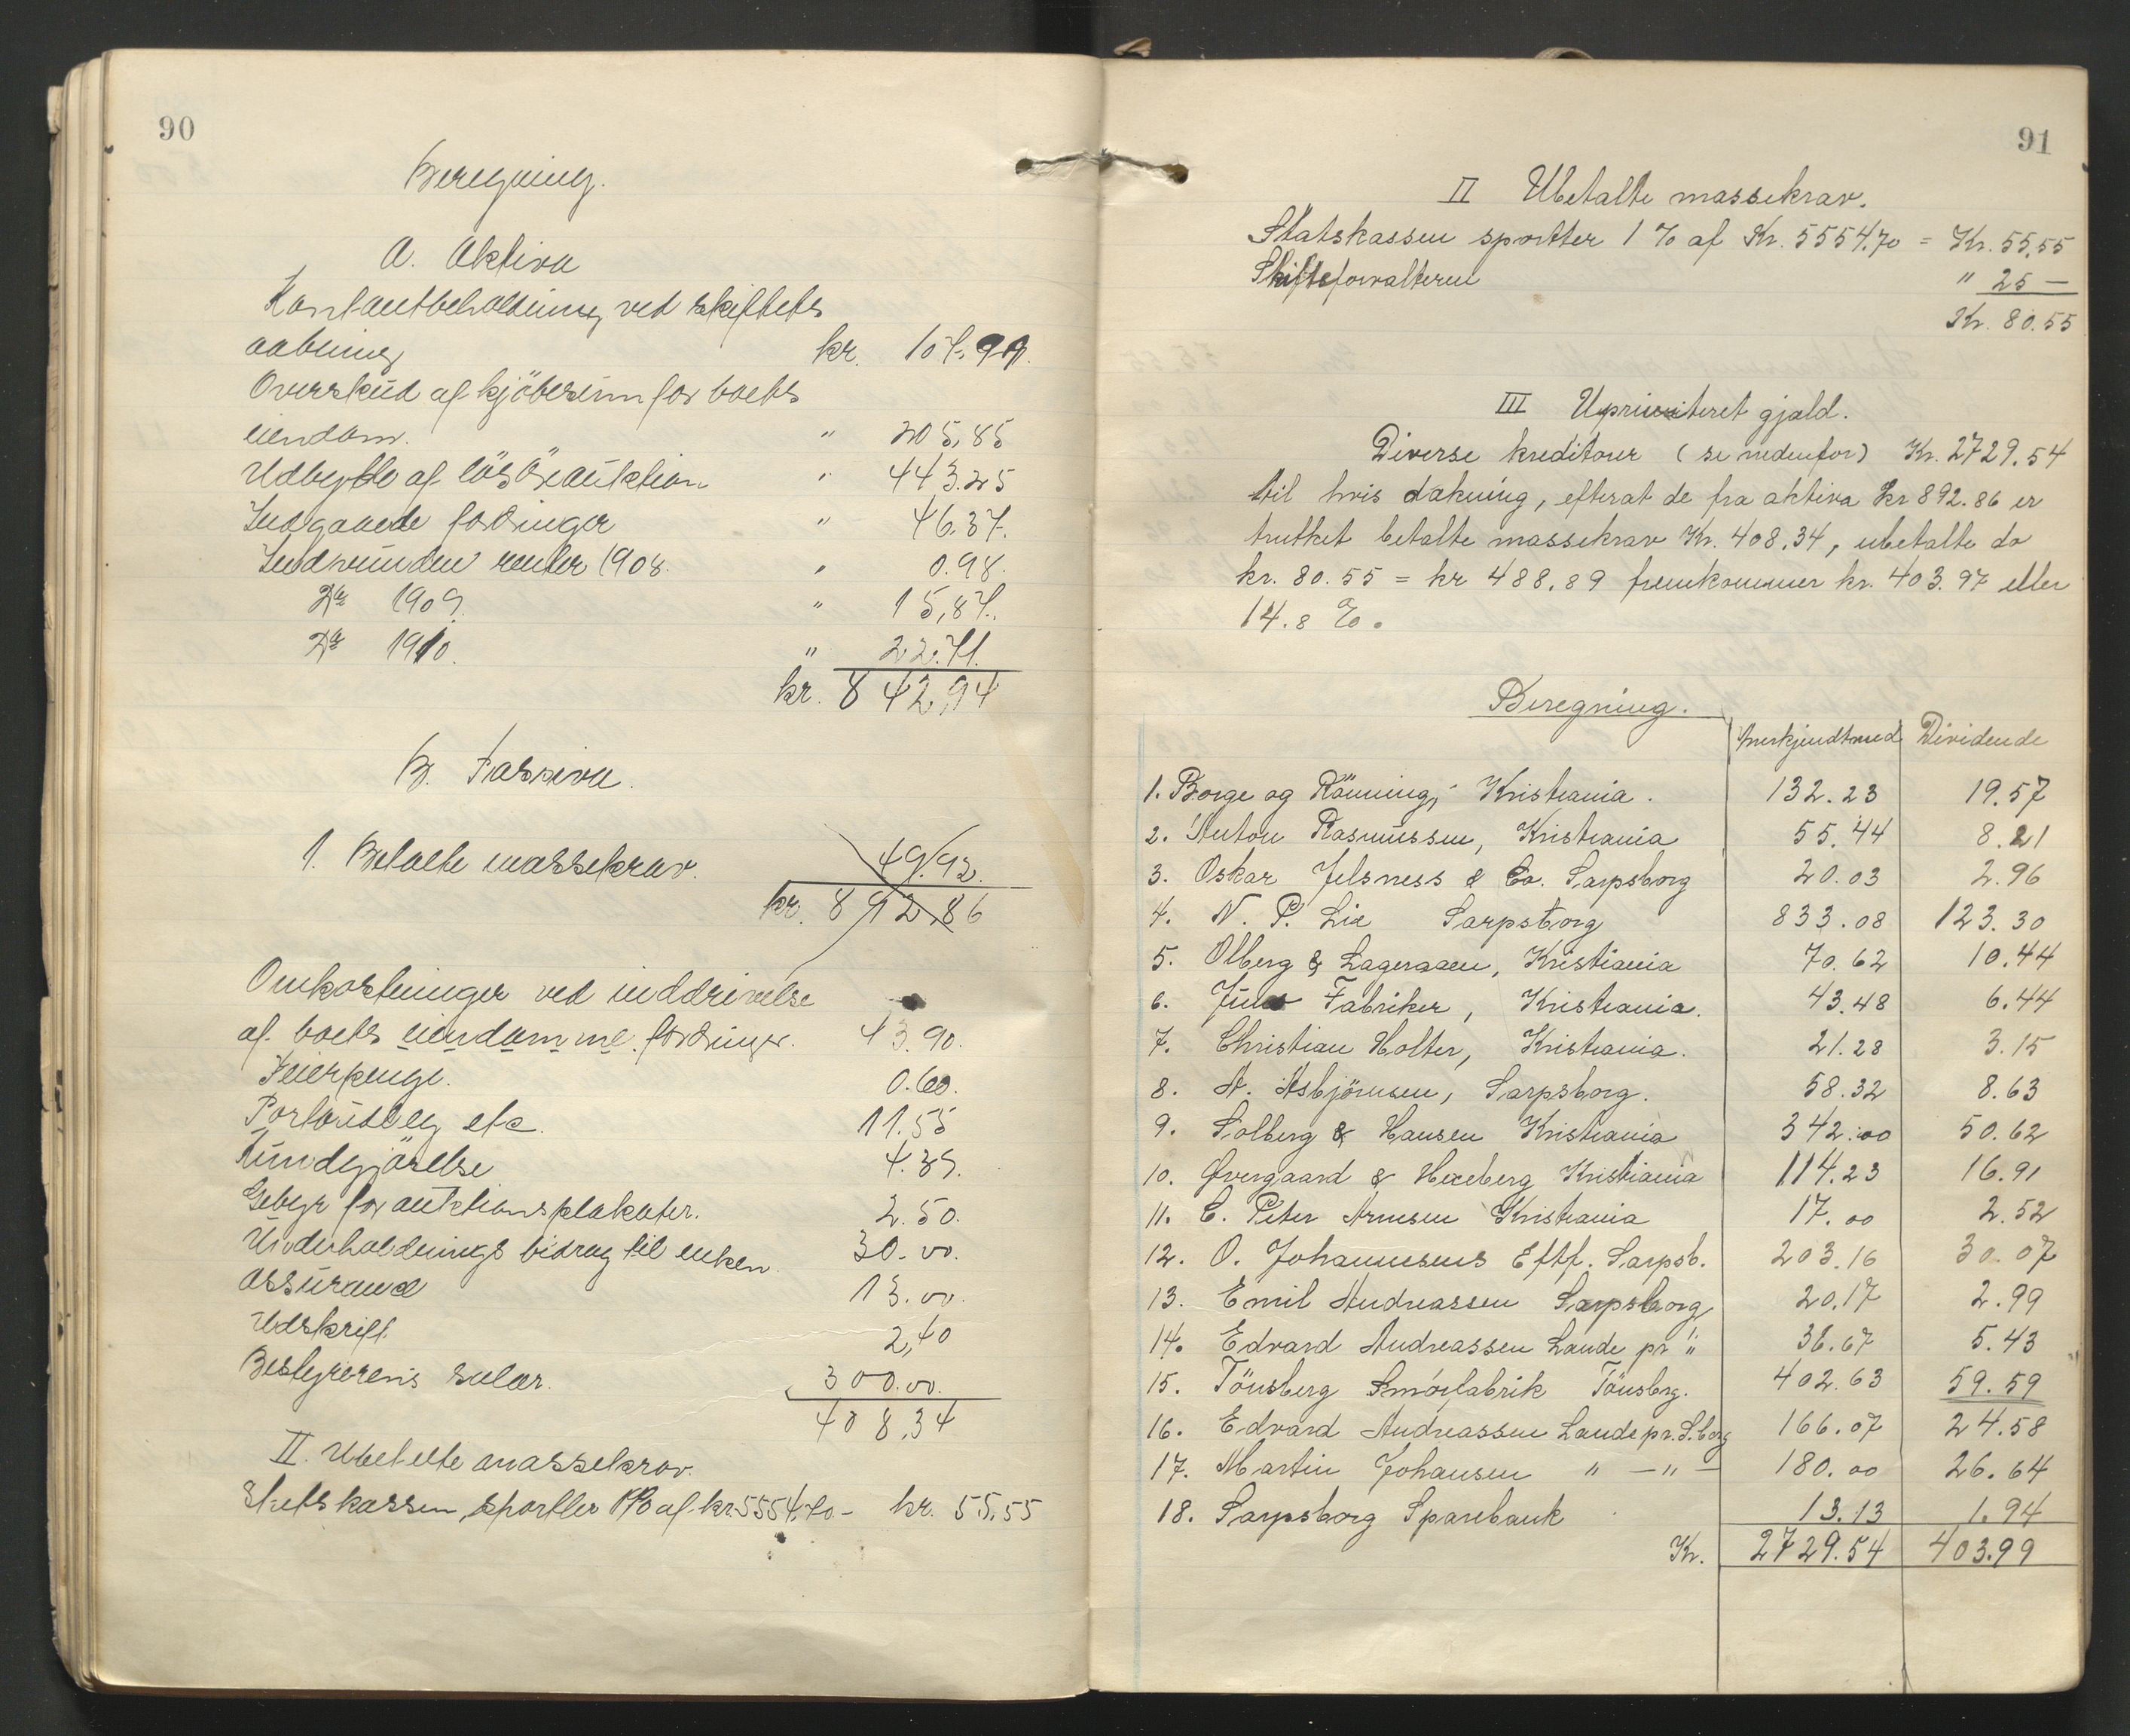 90
Beregning.
A. Aktiva
Kontantbeholdning ved skiftets
aabning kr. 107.91
Overskud af kjöbesum for boets
eiendom. " 205,85
Udbytte af lösöreauktion " 443.25
Indgaaede fordringer " 46.37.
Indvunden renter 1908. " 0.98.
Do 1909. " 15,87.
Do 1910. " 22.71.
kr. 842,94
B. Passiva.
1. Betalte massekrav. 49.92.
kr. 892.86
Omkostninger ved inddrivelse
af boets eiendomme fordringer. 43.90.
Feierpenge. 0.60.
Portoudlæg etc. 11.55
Kundgjörelse 4.39.
Gebyr for auktionsplakater. 2.50.
Underholdnings bidrag til enken 30.00.
Assurance 13.00.
Udskrift 2,40
Bestyrerens salær. 300.00.
408,34
II. Ubetalte massekrav.
Statskassen, sportler 1% af kr. 5554.70 - kr. 55,55
91
II Ubetalte massekrav.
Statskassen sportler 1 % af Kr. 5554.70 = Kr. 55.55
Skifteforvalteren " 25 —
Kr. 80.55
III Uprioriteret gjæld.
Diverse kreditorer (se nedenfor) Kr. 2729.54
til hvis dækning, efterat de fra aktiva kr 892.86 er
trukket betalte massekrav Kr. 408.34, ubetalte do
kr. 80.55 = kr 488.89 fremkommer kr. 403.97 eller
14.8 %.
Beregning.
Anerkjendt med Dividende
1. Borge og Rönning, Kristiania. 132.23 19.57
2. Anton Rasmussen, Kristiania 55.44 8.21
3. Oskar Jelsness & Co. Sarpsborg 20.03 2.96
4. N. P. Lie Sarpsborg 833.08 123.30
5. Olberg & Lageraaen, Kristiania 70.62 10.44
6. Juns Fabriker, Kristiania. 43.48 6.44
7. Christian Holter, Kristiania. 21.28 3.15
8. A. Asbjörnsen, Sarpsborg. 58.32 8.63
9. Solberg & Hansen Kristiania 342.00 50.62
10. Øvergaard & Hexeberg Kristiania 114.23 16.91
11. C. Peter Arnesen Kristiania 17.00 2.52
12. O. Johannesens Eftf. Sarpsb. 203.16 30.07
13. Emil Andreassen Sarpsborg 20.17 2.99
14. Edvard Andreassen Lande pr " 36.67 5.43
15. Tönsberg Smörfabrik Tönsbrg. 402.63 59.59
16. Edvard Andreassen Lande pr. S.borg 166.07 24.58
17. Martin Johansen " — " — 180.00 26.64
18. Sarpsborg Sparebank 13.13 1.94
Kr. 2729.54 403.99